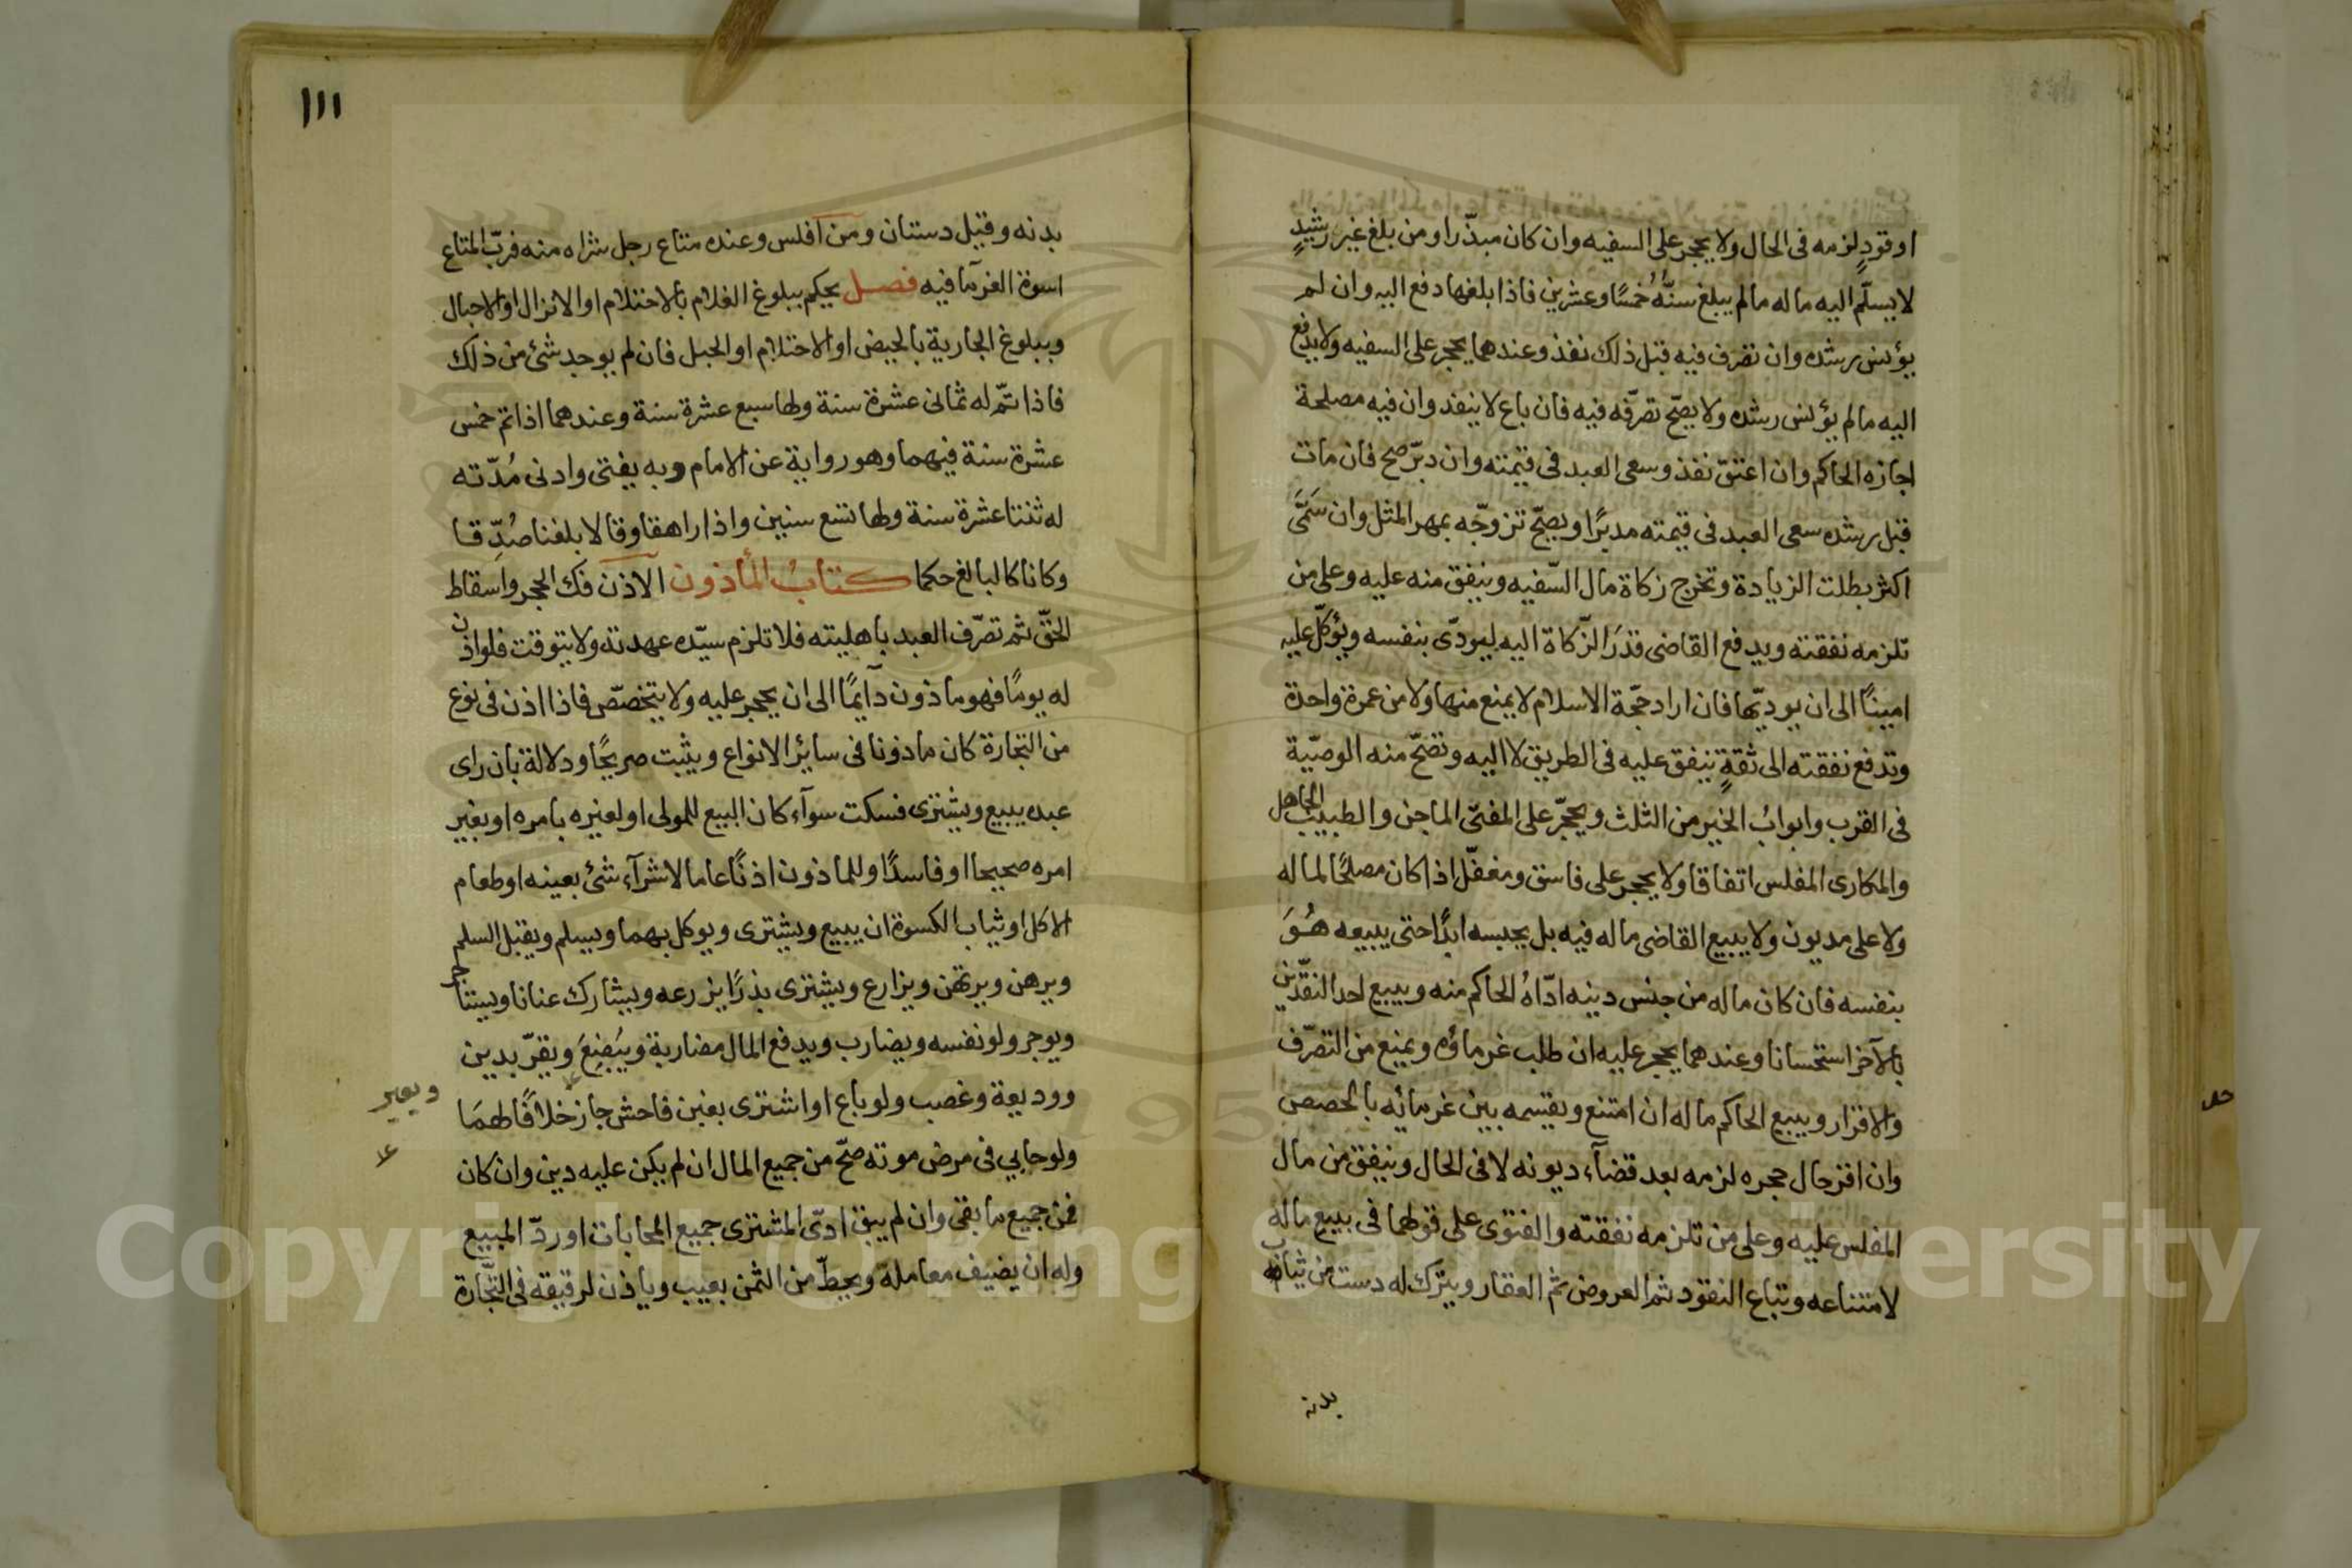 او قود لزمه فى الحال ولا يحجر على السفيه وان كان مبذّرا ومن بلغ غير رشيدٍ
لا يسلّم اليه ماله مالم يبلغ سنُّهُ خمسًا وعشرين فاذا بلغها دفع اليه وان لم
يؤنس رشده وان تصرف فيه قبل ذلك نفذ وعندهما يحجر على السفيه ولا يدفع
اليه مالم يؤنس رشده ولا يصحّ تصرّفه فيه فان باع لا ينفذ وان فيه مصلحة
اجازه الحاكم وان اعتق نفذ وسعى العبد فى قيمته وان دبّر صح فان مات
قبل رشده سعى العبد فى قيمته مدبرًا ويصحّ تزوجّه بمهر المثل وان سَمَّى
اكثر بطلت الزيادة وتخرج زكاة مال السّفيه وينفق منه عليه وعلى من
تلزمه نفقته ويدفع القاضى قدَرَ الزّكاة اليه ليودّى بنفسه ويؤكّل عليه
امينًا الى ان يوديّها فان اراد حجّة الاسلام لا يمنع منها ولا من عمرة واحدة
وتدفع نفقته الى ثقةٍ ينفق عليه فى الطريق لا اليه وتصّح منه الوصيّة
فى القرب وابوابُ الخير من الثلث ويحجّر على المفتى الماجن والطبيب الجاهل
والمكارى المفلس اتفاقا ولا يحجر على فاسق ومغفّل اذا كان مصلحًا لماله
ولا على مديون ولا يبيع القاضى ماله فيه بل يحبسه ابدًا حتى يبيعه هُوَ
بنفسه فان كان ماله من جنس دينه ادّاهُ الحاكم منه ويبيع احد النقّدين
بالآخر استحسانا وعندهما يحجر عليه ان طلب غرماؤه ويمنع من التصرّف
والاقرار ويبيع الحاكم ماله ان امتنع ويقسمه بين غرمائه بالحصص
وان اقر حال حجره لزمه بعد قضآء ديونه لا فى الحال وينفق من مال
المفلس عليه وعلى من تلزمه نفقته والفتوى على قولهما فى بيع ماله
لامتناعه وتباع النقود ثم العروض ثم العقار ويترك له دست من ثياب
بدنه
١١١
بدنه وقيل دستان ومن افلس وعنده متاع رجل شراه منه فربّ المتاع
اسوة الغرمآ فيه فصل يحكم ببلوغ الغلام بالاحتلام او الانزال او الاحبال
وببلوغ الجارية بالحيض او الاحتلام او الحبل فان لم يوجد شئ من ذلك
فاذا تمّ له ثمانى عشرة سنة ولها سبع عشرة سنة وعندهما اذا تم خمس
عشرة سنة فيهما وهو رواية عن الامام وبه يفتى وادنى مُدّته
له ثنتا عشرة سنة ولها تسع سنين واذا راهقا وقالا بلغنا صُدِّقا
وكانا كالبالغ حكما كتابُ المأذون الاذن فك الحجر واسقاط
الحقّ ثم تصرّف العبد باهليته فلا تلزم سيّده عهدته ولا يتوقت فلو اذن
له يومًا فهو ماذون دآيمًا الى ان يحجر عليه ولا يتخصّص فاذا اذن فى نوع
من التجارة كان ماذونا فى سائر الانواع ويثبت صريحًا ودلالة بان راى
عبده يبيع ويشترى فسكت سوآء كان البيع للمولى او لغيره بامره او بغير
امره صحيحا او فاسدًا وللماذون اذنًا عاما لا شرآء شئ بعينه او طعام
الاكل او ثياب الكسوة ان يبيع ويشترى ويوكل بهما ويسلم ويقبل السلم
ويرهن ويرتهن ويزارع ويشترى بذرًا يزرعه ويشارك عنانا ويستاجر
ويوجر ولو نفسه ويضارب ويدفع المال مضاربة ويُبضِعَ ويقرّ بدين
ويعير
ووديعة وغصب ولو باع او اشترى بغبن فاحش جاز خلافًا لهمَا
ولو حابى فى مرض موته صحّ من جميع المال ان لم يكن عليه دين وان كان
فمن جميع ما بقى وان لم يبق ادّى المشترى جميع المحابات او ردّ المبيع
وله ان يضيف معامله ويحطّ من الثمن بعيب وياذن لرقيقه فى التّجارة